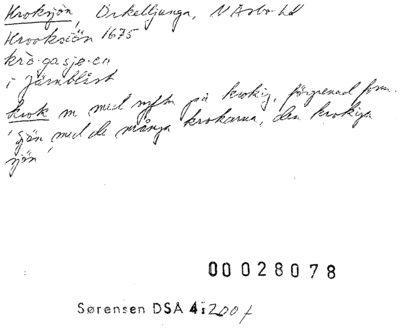 Kroksjön, Örkelljunga, N Åsbo hd
Krooksiön 1675
krò·gasjø·en
i Järnblåst
krok m med syftn på krokig, förgrenad form.
'sjön med de många krokarna, den krokiga
sjön'
00028078
Sørensen DSÅ 4:200